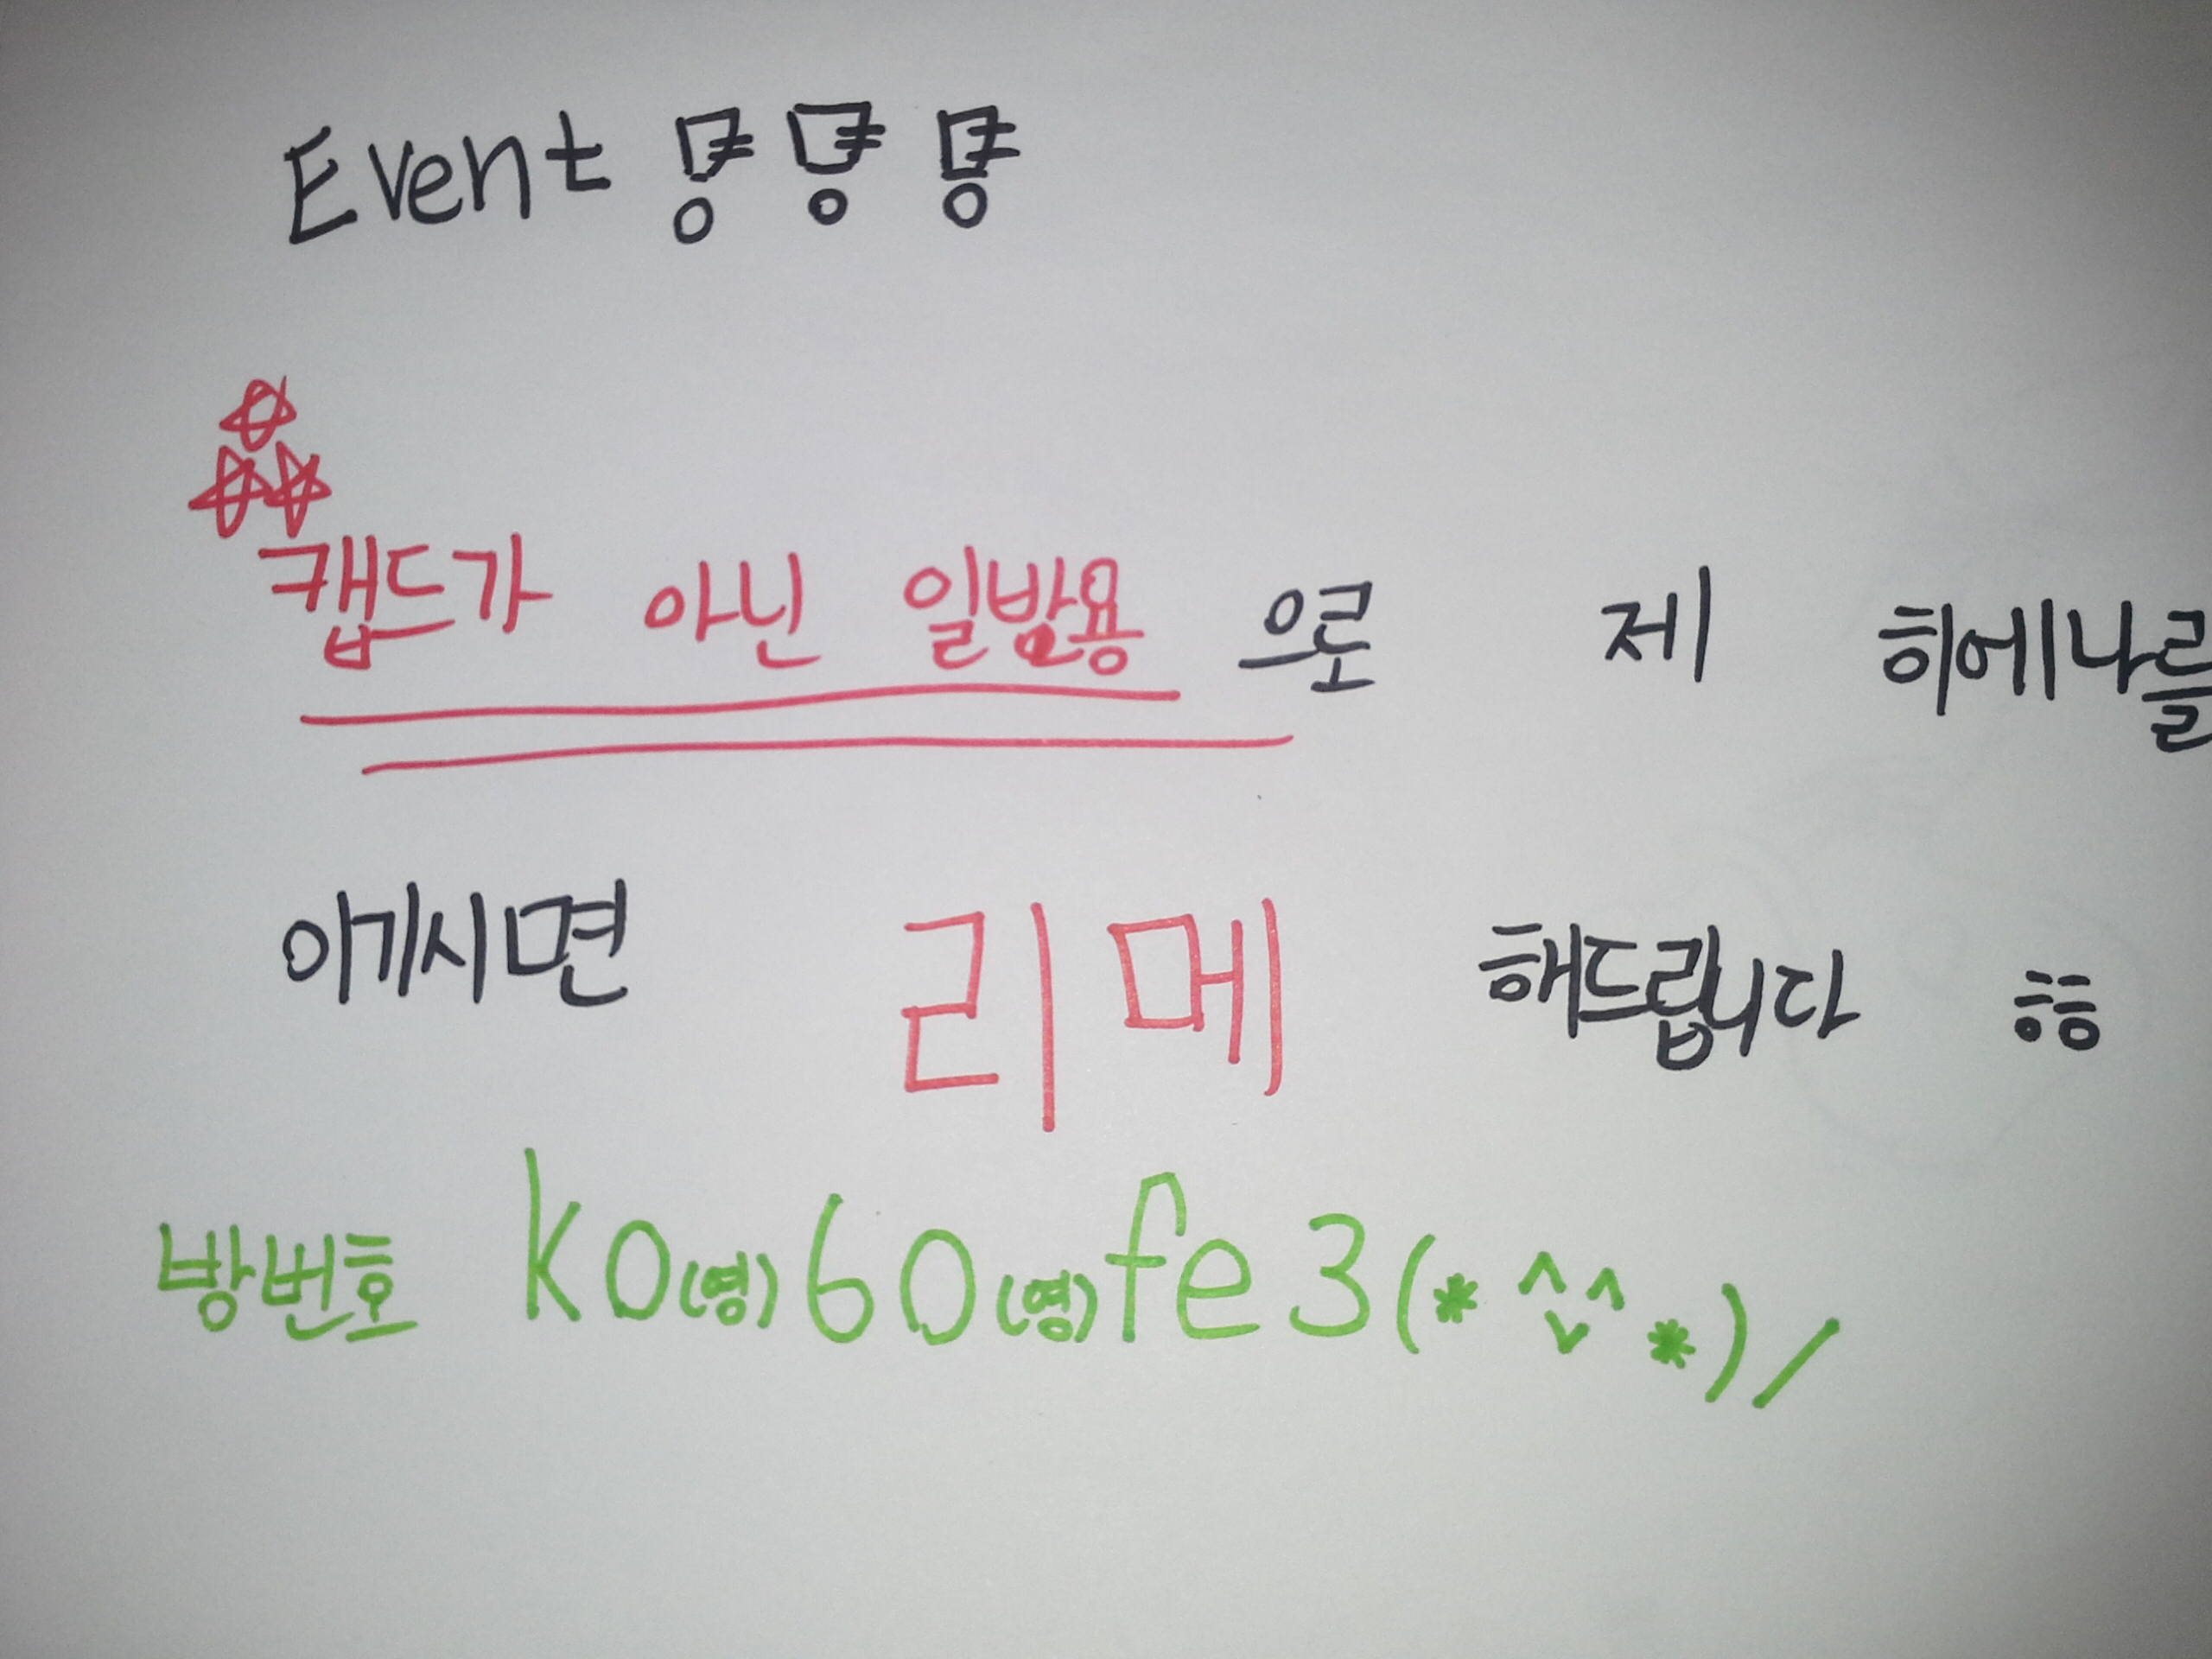 Event 뿅뿅뿅
캡드가 아닌 일반용으로 제 히에나를
이기시면 리메 해드립니다 ㅎㅎ
방번호 k0(영)60(영)fe3(*^v^*)/